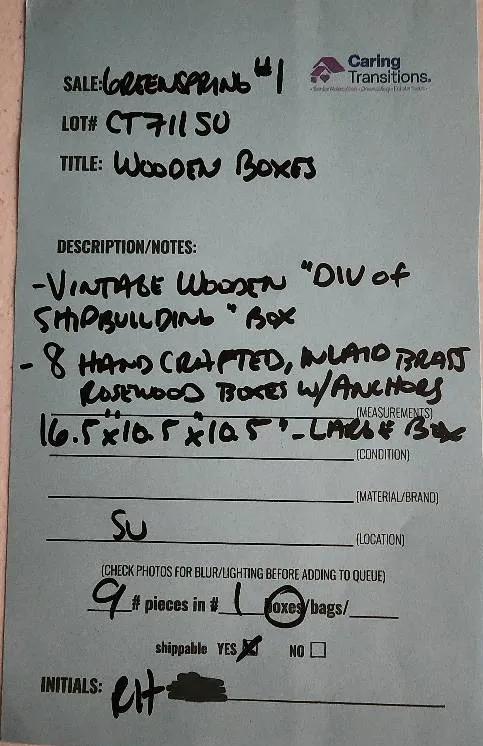 SALE: GREENSPRING #1
Caring
Transitions.
LOT# CT711SU
TITLE: WOODEN BOXES
DESCRIPTION/NOTES:
- VINTAGE WOODEN "DIV OF
SHIPBUILDING" BOX
- 8 HAND CRAFTED, INLAID BRASS
ROSEWOOD BOXES W/ANCHORS
(MEASUREMENTS)
16.5"x10.5"x10.5" - LARGE BOX
(CONDITION)
(MATERIAL/BRAND)
SU (LOCATION)
(CHECK PHOTOS FOR BLUR/LIGHTING BEFORE ADDING TO QUEUE)
9 # pieces in # 1 boxes/bags/
shippable YES ☒ NO ☐
INITIALS: RH